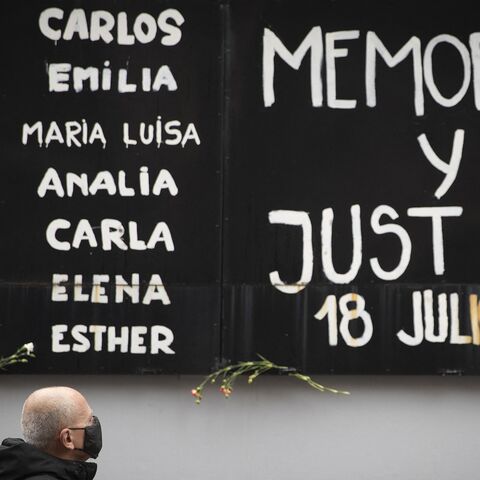 CARLOS
EMILIA
MARIA LUISA
ANALIA
CARLA
ELENA
ESTHER
MEMO
Y
JUST
18 JULI